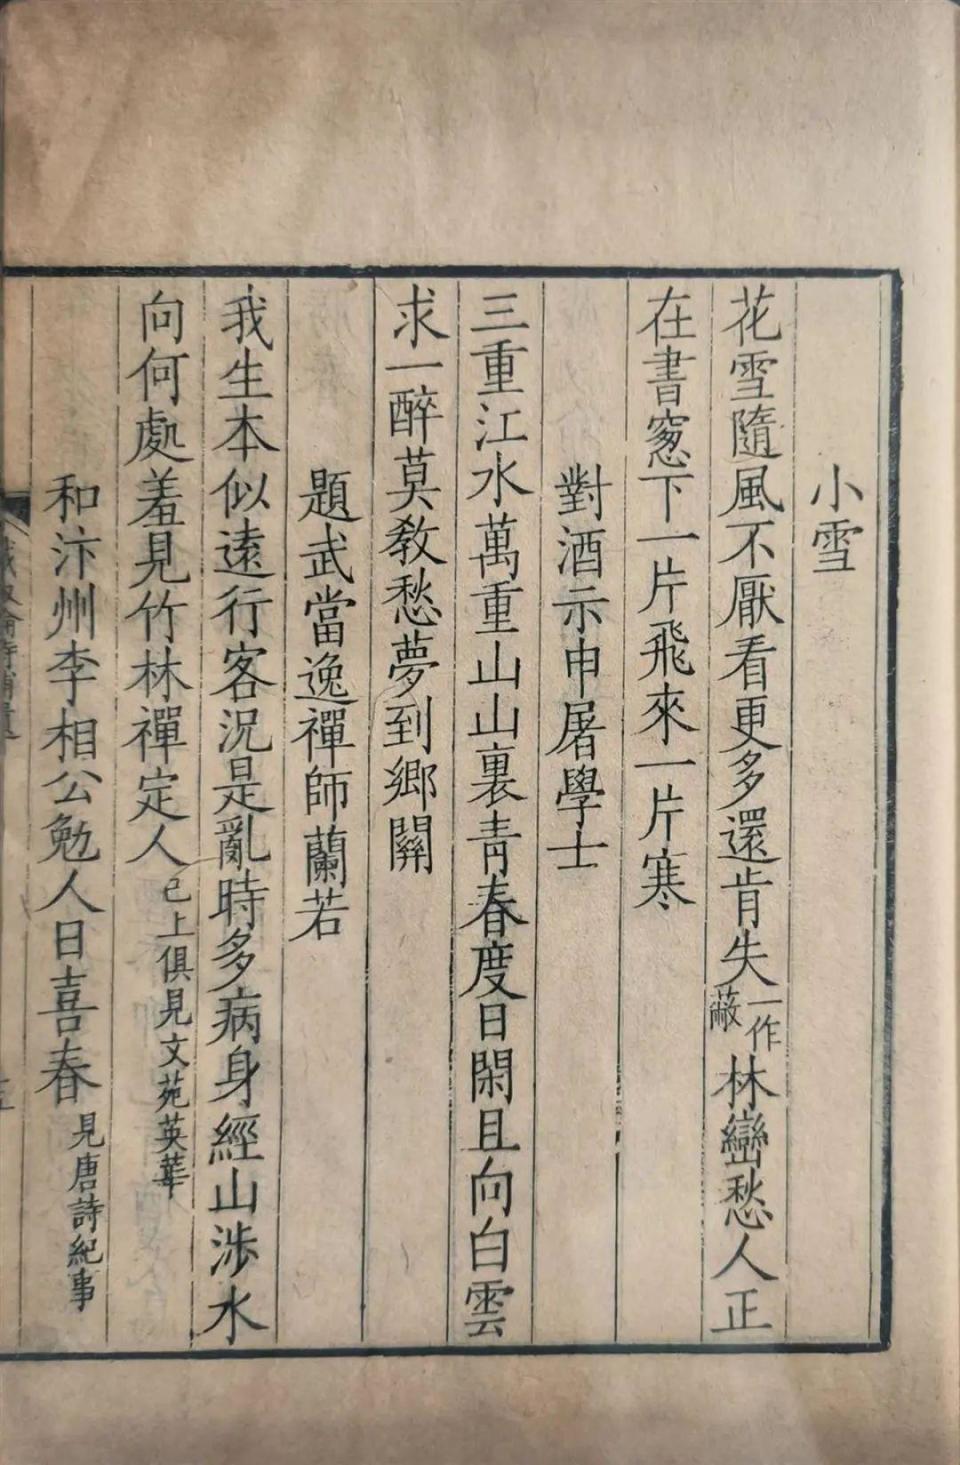 小雪
花雪隨風不厭看更多還肯失一作蔽林巒愁人正
在書窻下一片飛來一片寒
對酒示申屠學士
三重江水萬重山山裏青春度日閑且向白雲
求一醉莫敎愁夢到鄉關
題武當逸禪師蘭若
我生本似遠行客況是亂時多病身經山涉水
向何處羞見竹林禪定人已上俱見文苑英華
和汴州李相公勉人日喜春見唐詩紀事